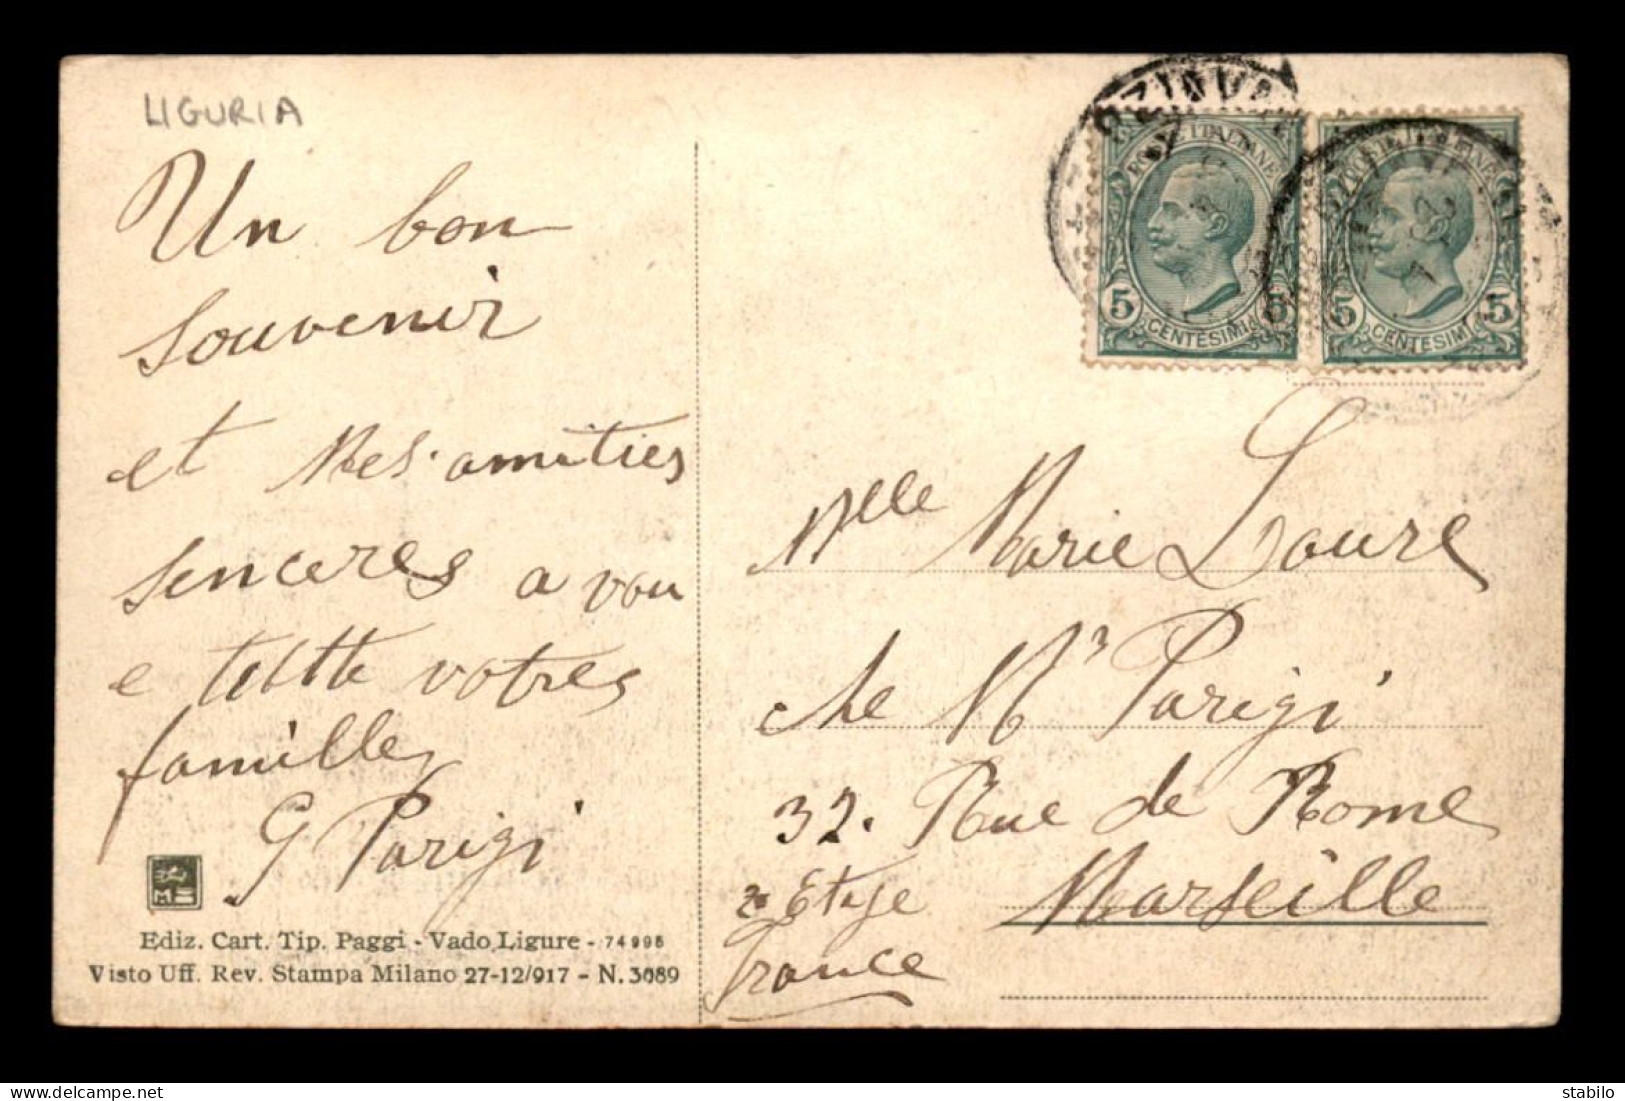 LIGURIA
Un bon
souvenir
et mes amities
senceres a vou
e tutte votres
famille
G Parigi
Ediz. Cart. Tip. Paggi - Vado Ligure - 74996
Visto Uff. Rev. Stampa Milano 27-12/917 - N. 3089
POSTE ITALIANE
5 5
CENTESIMI
POSTE ITALIANE
5 5
CENTESIMI
Mlle Marie Loure
che Mr Parigi
32. Rue de Rome
2e Etage Marseille
France
stabilo